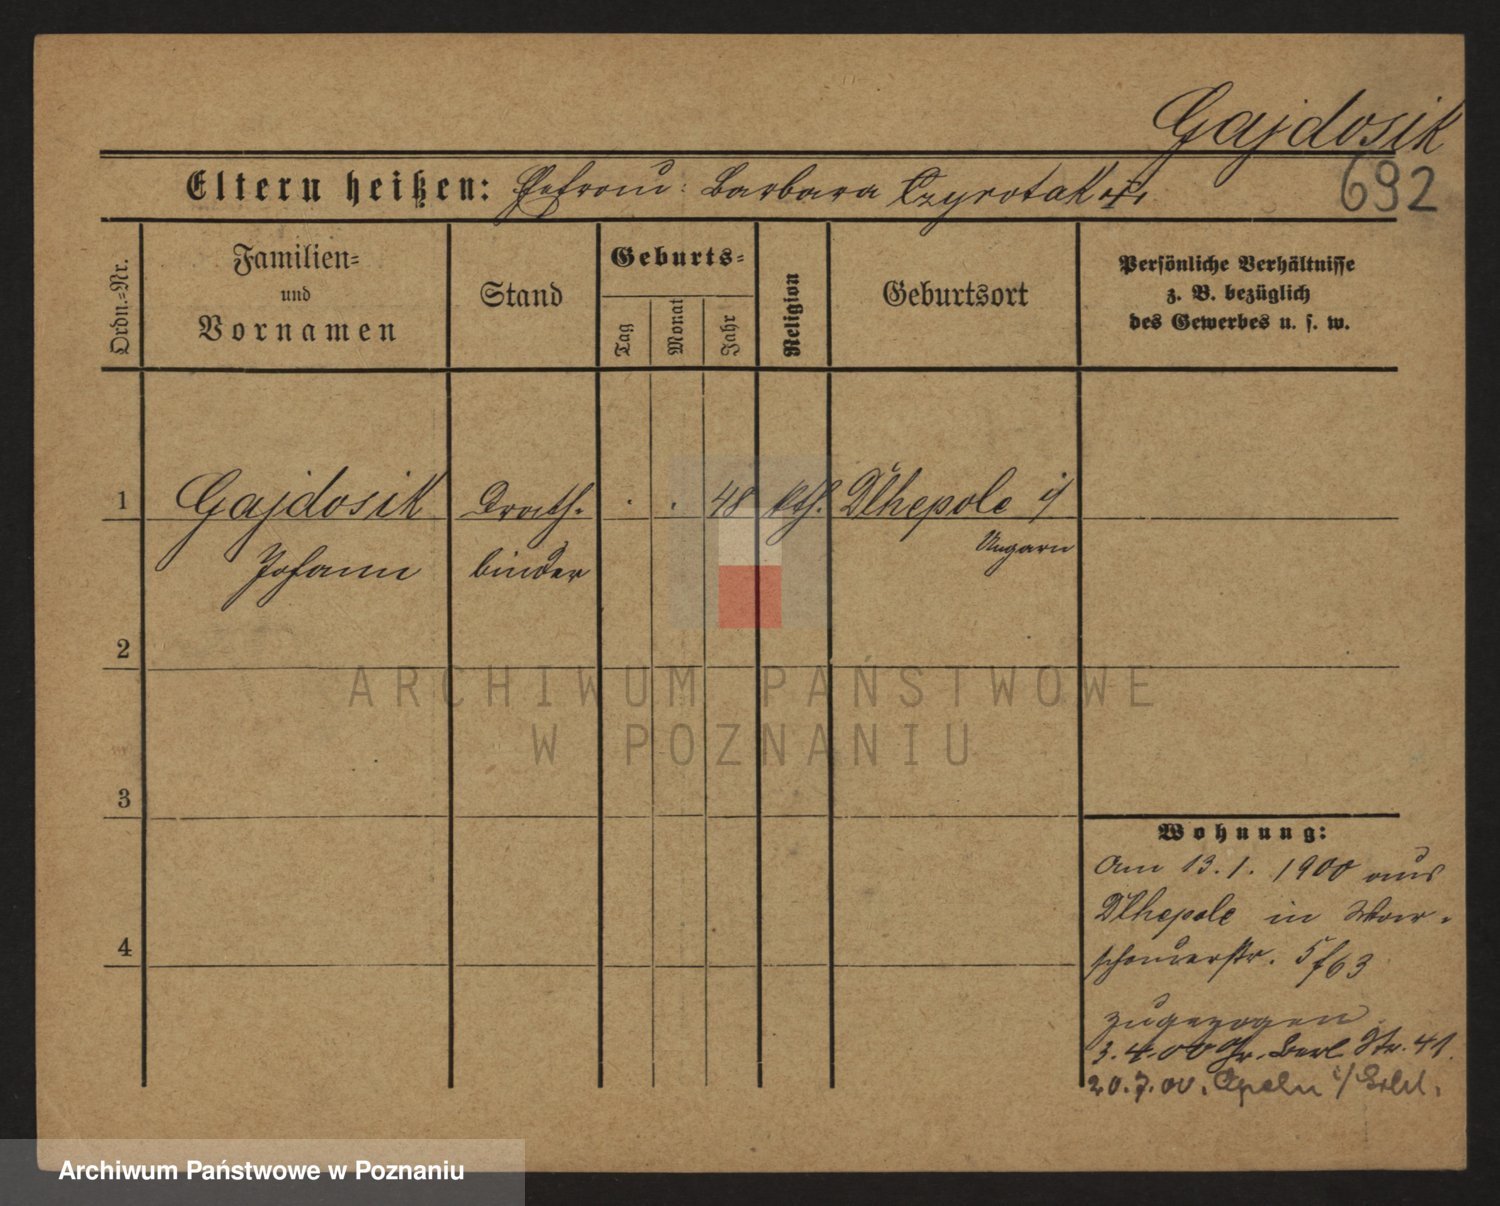 Gajdosik
692
Eltern heißen: Ehefrau: Barbara Czyrotak
Ordn.=Nr.
Familien=
und
Vornamen
Stand
Geburts=
Tag
Monat
Jahr
Religion
Geburtsort
Persönliche Verhältnisse
z. B. bezüglich
des Gewerbes u. s. w.
1 Gajdosik Drath- . . 48 kth. Dlhepole i/
Johann binder Ungarn
2
ARCHIWUM PAŃSTWOWE
W POZNANIU
3
Wohnung:
Am 13.1. 1900 aus
Dlhepole in War-
schauerstr. 5/63
4
zugezogen
3.4.00 Gr. Berl. Str. 41.
20.7.00.
Archiwum Państwowe w Poznaniu